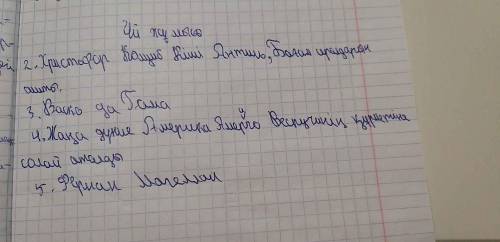 Үй жұмысы
2. Христофор Колумб Кіші Антиль, Богам аралдарын
ашты.
3. Васко да Гама
4. Жаңа дүние Америка Америго Веспуччинің құрметіне
солай аталды
5. Фернан Магеллан